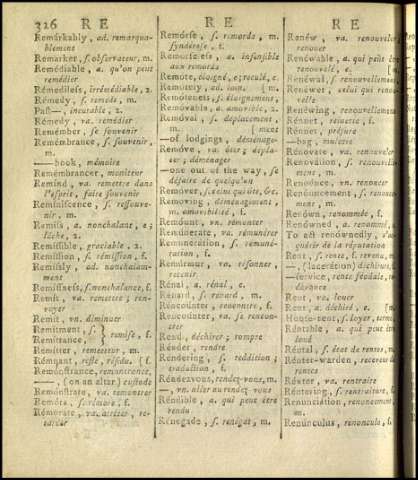 326 R E
R E
R E
Remárkably, ad. remarqua-
blement
Remarker, s. observateur, m.
Remédiable, a. qu'on peut
remédier
Rémediless, irrémédiable, 2.
Rémedy, s. remede, m.
Past—, incurable, 2.
Rémedy, va. remédier
Remémber, se souvenir
Remémbrance, s. souvenir,
m.
—book, mémoire
Remémbrancer, moniteur
Remínd, va. remettre dans
l'esprit, faire souvenir
Reminíscence, s. ressouve-
nir, m.
Remíss, a. nonchalant, e;
lâche, 2.
Remíssible, graciable, 2.
Remíssion, s. rémission, f.
Remíssly, ad. nonchalam-
ment
Remíssness, s. nonchalance, f.
Remít, va. remettre; ren-
voyer
Remit, vn. diminuer
Remítment, s.
Remíttance, remise, f.
Remítter, remetteur, m.
Rémnant, reste, résidu,
Remónstrance, remontrance,
—, (on an altar) custode
Remónstrate, va. remontrer
Remórse, s. remords, m.
syndérese, f.
Remorseless, a. insensible
aux remords
Remóte, éloigné, e; reculé, e.
Remótely, ad. loin,
Remóteness, s. éloignement,
Remóvable, a. amovible, 2.
Remóval, s. déplacement,
m.
—of lodgings, déménage-
Remóve, va. ôter; dépla-
cer; déménager
—one out of the way, se
défaire de quelqu'un
Remóver, s. celui qui ôte, &c.
Remóving, déménagement,
m. amovibilité, f.
Remóunt, vn. remonter
Remúnerate, va. rémunérer
Remunerátion, s. rémuné-
ration, f.
recevoir
Rénal, a. rénal, e.
Rénard, s. renard, m.
Rencóunter, rencontre, f.
Rencounter, va. se rencon-
trer
Rend, déchirer; rompre
Rénder, rendre
Réndering, s. reddition;
traduction, f.
Réndezvous, rendez-vous, m.
—, vn. aller au rendez-vous
Réndible, a. qui peut être
rendu
Rénegade, s. renégat, m.
Renéw, va. renouveler;
renouer
Renéwable, a. qui peut être
renouvelé, e.
Renéwal, s. renouvellement
Renéwer, celui qui renou-
velle
Renéwing, renouvellement
Rénnet, reinette, f.
Rénnet, présure
—bag, mulette
Rénovate, va. renouveler
Renovátion, s. renouvelle-
ment, m.
Renóunce, vn. renoncer
Renóuncement, s. renonce-
ment, m.
Renówn, renommée, f.
Renówned, a. renommé, e.
To act renównedly, s'ac-
quérir de la réputation
Rent, s. rente, f. revenu, m.
—, (laceration) déchirure, f.
—service, rente féodale, re-
devance
Rent, va. louer
Rent, a. déchiré, e.
House-rent, s. loyer, terme,
Réntable, a. qui peut être
loué
Réntal, s. état de rentes, m.
Rénter-warden, receveur de
rentes
Rénter, va. rentraire
Réntering, s. rentraiture, f.
Renunciátion, renoncement,
m.
Renúnculus, renoncule, f.